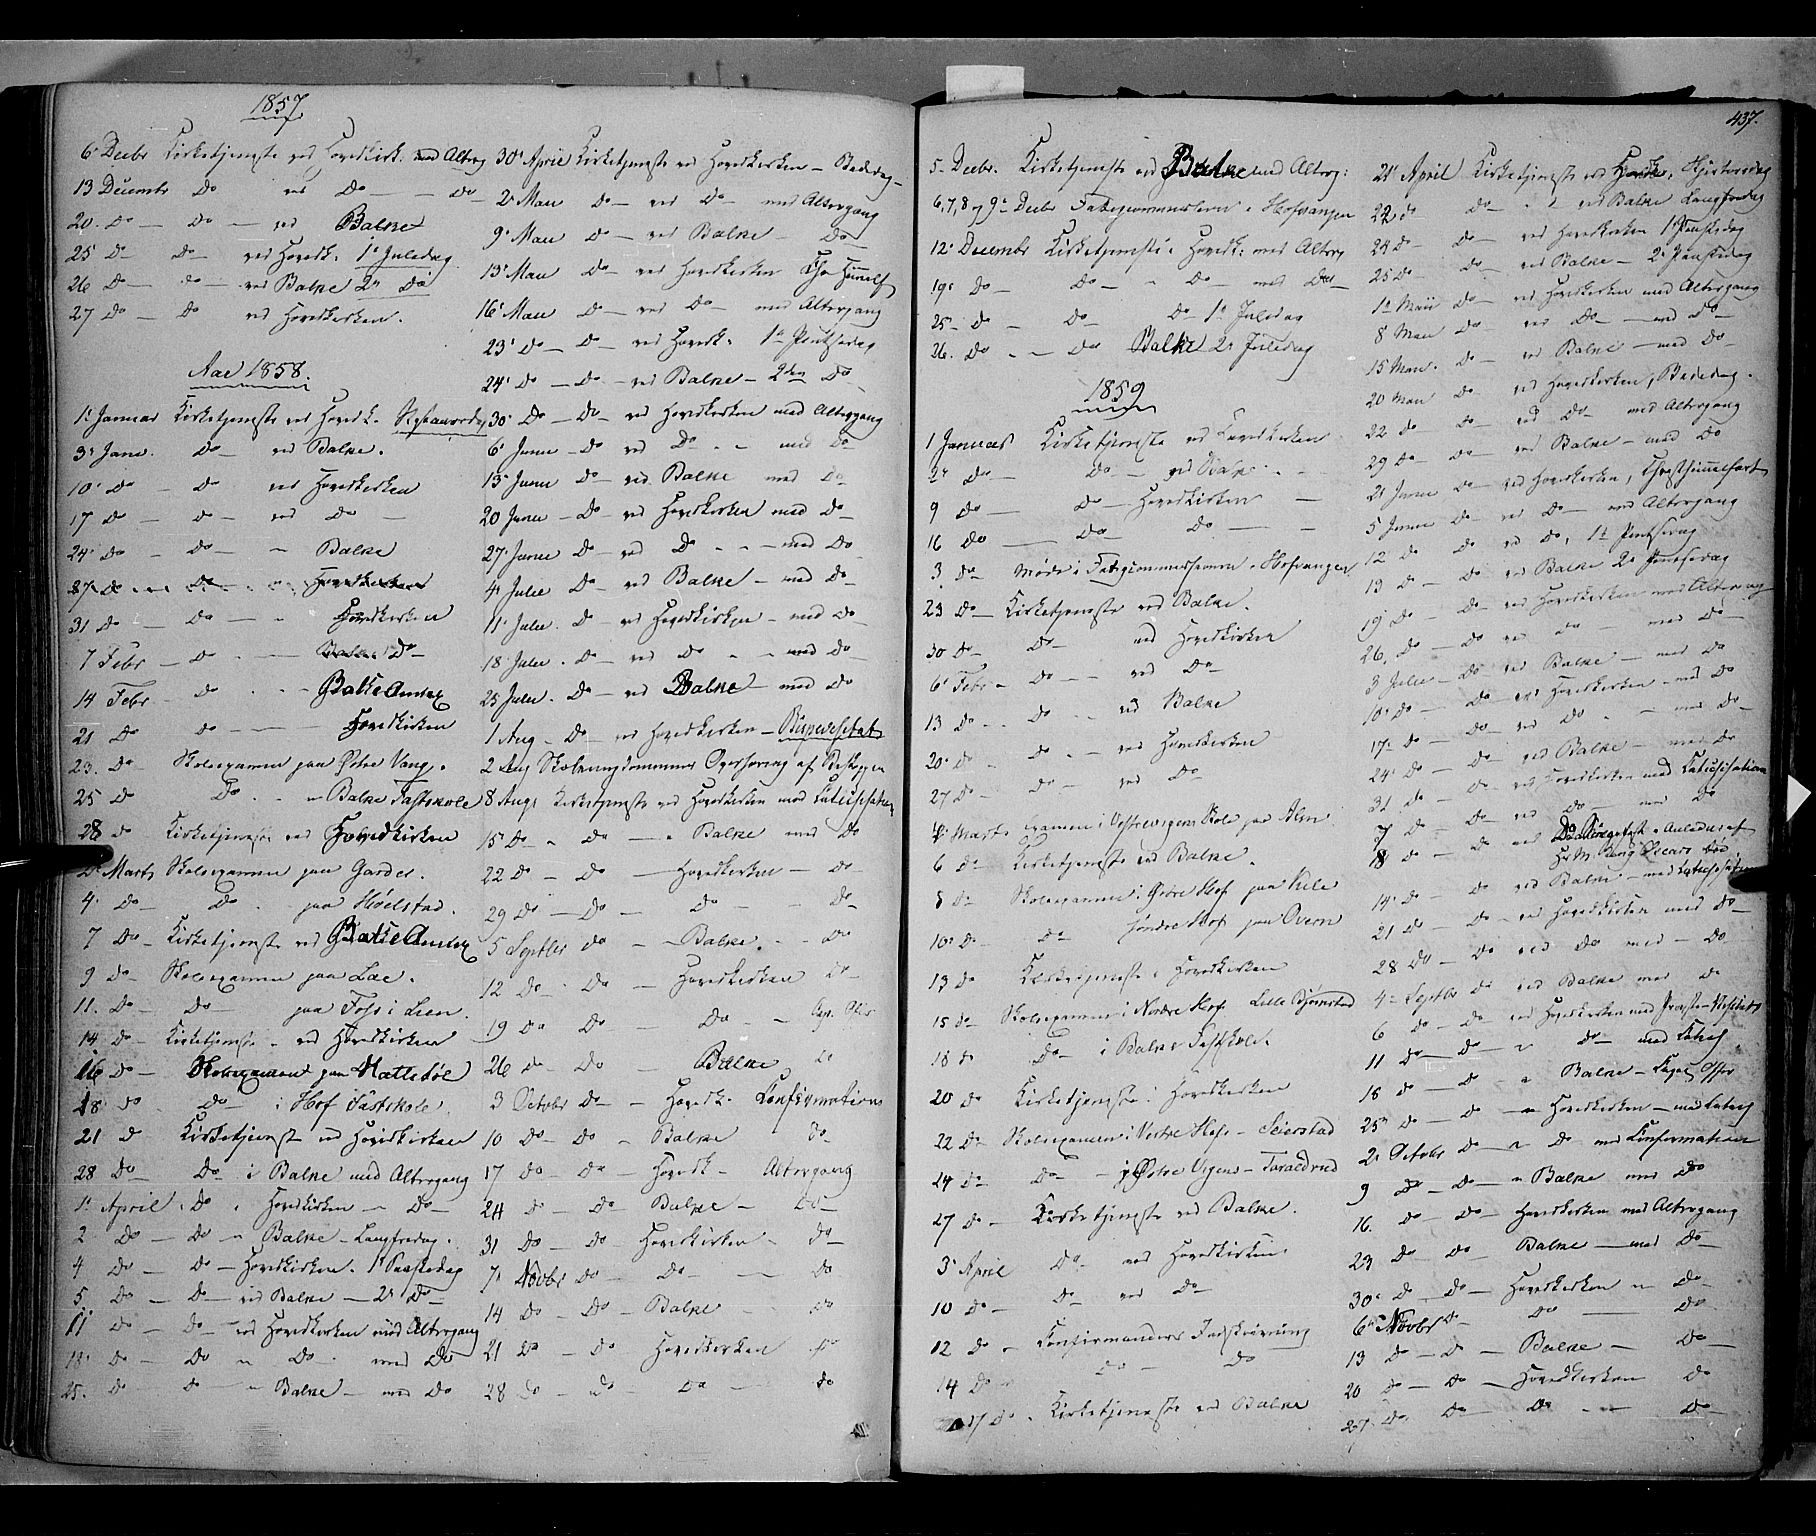 1857
6 Decbr Kirketjeneste ved Hovedkirk. med Alterg
13 Decembr Do ved Do — Do
20. Do — Do — ved Balke
25 Do — Do — ved Hovedk: 1ste Juledag
26 Do — Do — ved Balke 2n Do
27 Do — Do ved Hovedkirken.
Aar 1858.
1. Januar Kirketjeneste ved Hovedk.
3. Janr. Do — ved Balke.
10. Do — Do ved Hovedkirken
17 Do — Do — ved Do —
24. Do — Do — " Balke
27. Do — Do — Hovedkirken
31 Do — Do — " Hovedkirken
7 Febr — Do — Do —
14 Febr — Do — Balke Annex
21 Do — Do — Hovedkirken
23. Do — Skoleexamen paa Østre Vang.
25 Do — Do — " Balke Fastskole
28 Do Kirketjeneste ved Hovedkirken
2 Marts Skoleexamen paa Garder.
4. Do — Do — paa Hoelstad.
7 Do — Kirketjeneste ved Balke Annex
9 Do — Skoleexamen paa Lae.
11. Do — Do — paa Foss i Lien.
14 Do — Kirketjeneste — ved Hovedkirken
16 Do — Skoleexamen paa
18. Do — Do — i Hof Fastskole.
21 Do Kirketjenest ved Hovedkirken
28 Do — Do — i Balke med Altergang
1. April Do " Hovedkirken — Do —
2 Do — Do — " Balke — Langfredag.
4 Do — Do — Hovedkirken. 1ste Paaskedag
5. Do — Do — ved Balke — 2n Do —
11 Do — Do — ved Hovedkirken med Altergang
18. Do — Do — " Do — med Do
25. Do — Do — " Balke — med Do
30. April Kirketjeneste ved Hovedkirken — Bededag —
2 Maii Do — ved Do — med Altergang
9. Maii Do — ved Balke — Do —
13. Maii Do — ved Hovedkirken Chr. Himmelf
16. Maii Do — ved Do — med Altergang
23. Do — Do — ved Hovedk: 1ste Pintsedag
24. Do — Do — ved Balke — 2den Do
30. Do — Do — ved Hovedkirken med Altergang
6. Junii — Do — ved Do — med Do
13. Junii Do — ved Balke med Do —
20 Junii — Do — ved Hovedkirken med Do —
27. Junii Do — ved Do — med Do
4. Julii Do — ved Balke — med Do —
11. Julii. Do — ved Hovedkirken — med Do
18. Julii. Do — ved Do — med Do
25 Julii. Do — ved Balke — med Do
1 Aug — Do — ved Hovedkirken — Bispevisitats
2 Aug Skoleungdommens Overhøring af Biskoppen
8 Aug. Kirketjeneste ved Hovedkirken med Katechisation
15. Do — Do — " Balke med Do
22 Do — Do — Hovedkirken — Do
29 Do — Do — Do — Do —
5 Septbr Do — " Balke. Do
12 Do — Do — Hovedkirken Do —
19 Do Do — Do —
26 Do — Do — Balke Do
3 Octobr Do — Hovedk. Confirmations
10 Do — Do — " Balke Do
17 Do Do — Hovedk — Altergang
24 Do — Do — Balke — Do —
31 Do — Do — Hovedkirken — Do
7. Novbr Do — Do — Do
14 Do Do — Balke — Do
21 Do — Do Hovedkirken Do
28 Do — Do — Do — Do
437.
5. Decbr. Kirketjeneste ved Balke med Alterg:
6, 7, 8 og 9. Decbr Fattigcommission " Hofvangen
12. Decembr Kirketjeneste i Hovedk: med Alterg
19. Do — Do — " Do — med Do
25. Do — Do — Do 1ste Juledag
26. Do — Do Balke 2. Juledag
1859
1 Januar Kirketjeneste ved Hovedkirken
2. Do — Do — ved Balke.
9 Do — Do — Hovedkirken —
16 Do — Do — Do —
3 Do — Møde i Fattigcommissionen " Hofvangen
23 Do — Kirketjeneste ved Balke.
30 Do — Do — ved Hovedkirken
6. Febr — Do — ved Do —
13 Do — Do — ved Balke
20. Do — Do — ved Hovedkirken
27 Do — Do — ved Do
4. Marts Examen i Vestrevigens Skole paa Alm
6 Do — Kirketjeneste ved Balke.
8 Do — Skoleexamen i Øvre Hof paa Lille
10. Do — Do — Søndre Hof paa Overn
13 Do Kirketjeneste i Hovedkirken
15 Do — Skoleexamen i Nordre Hof. Lille Bjørnstad
18 Do Do — i Balke Fastskole.
20 Do Kirketjeneste i Hovedkirken
22 Do — Skoleexamen i Vestre Hof — Seierstad
24 Do — Do — i Østre Vigen — Taraldrud
27 Do — Kirketjeneste ved Balke.
3. April Do — ved Hovedkirken
10 Do — Do — ved Do —
12 Do — Confirmanders Indskrivning
14 Do — Do — Do
17 Do " Kirketjeneste ved Balke
21. April Kirketjeneste ved Hovedk., Skjertorsdag
22 Do Do — " ved Balke Langfredag
24 Do — Do — ved Hovedkirken 1ste Paaskedag
25 Do — Do — ved Balke — 2. Paaskedag
1ste Maii Do — ved Hovedkirken med Altergang
8 Maii Do — ved Do — med Do —
15 Maii. Do — ved Balke — med Do —
20 Maii Do — ved Hovedkirken, Bededag.
22 Do Do — ved Do — med Altergang
29 Do — Do — ved Balke — med Do
2. Junii Do — ved Hovedkirken, Christi himmelfart
5 Junii Do — ved Do — med Altergang
12 Do Do ved Do, 1ste Pintsedag
13 Do — Do — ved Balke 2. Pintsedag
19 Do — Do — ved Hovedkirken med Altergang
26, Do — Do ved Do — med Do —
3 Julii — Do — ved Balke — med Do
10. Do — Do — ved Hovedkirken — med Do
17. Do — Do — ved Do — med Do —
24. Do — Do ved Balke — med Do
31 Do — Do — ved Hovedkirken med Katechisation
7 Do — Do ved Do — med Do
18 Do — Do — ved Do Sørgefest i Anledn. af
Hs. M. Kong Oscars Død
14. Do — Do ved Balke — med Katechisation
21 Do — Do — ved Hovedkirken med Do —
28 Do — Do ved Do med — Do
4. Septbr Do ved Balke med Do
6 Do — Do ved Hovedkirken med Provste-Visitats
11 Do — Do — " Do — med Katech.
18 Do — Do " Balke —
25. Do — Do — " Hovedkirken — med Katech
2. Octobr Do — " Do med Konfirmation
9 Do — Do — " Balke med Do
16. Do — Do — Hovedkirken med Altergang
23 Do Do — Balke — med Do
30. Do — Do — Hovedkirken " Do —
6. Novbr Do — Do — Do —
13 Do — Do — Balke — Do —
20 Do — Do — Hovedkirken Do
27. Do. Do — Do — Do